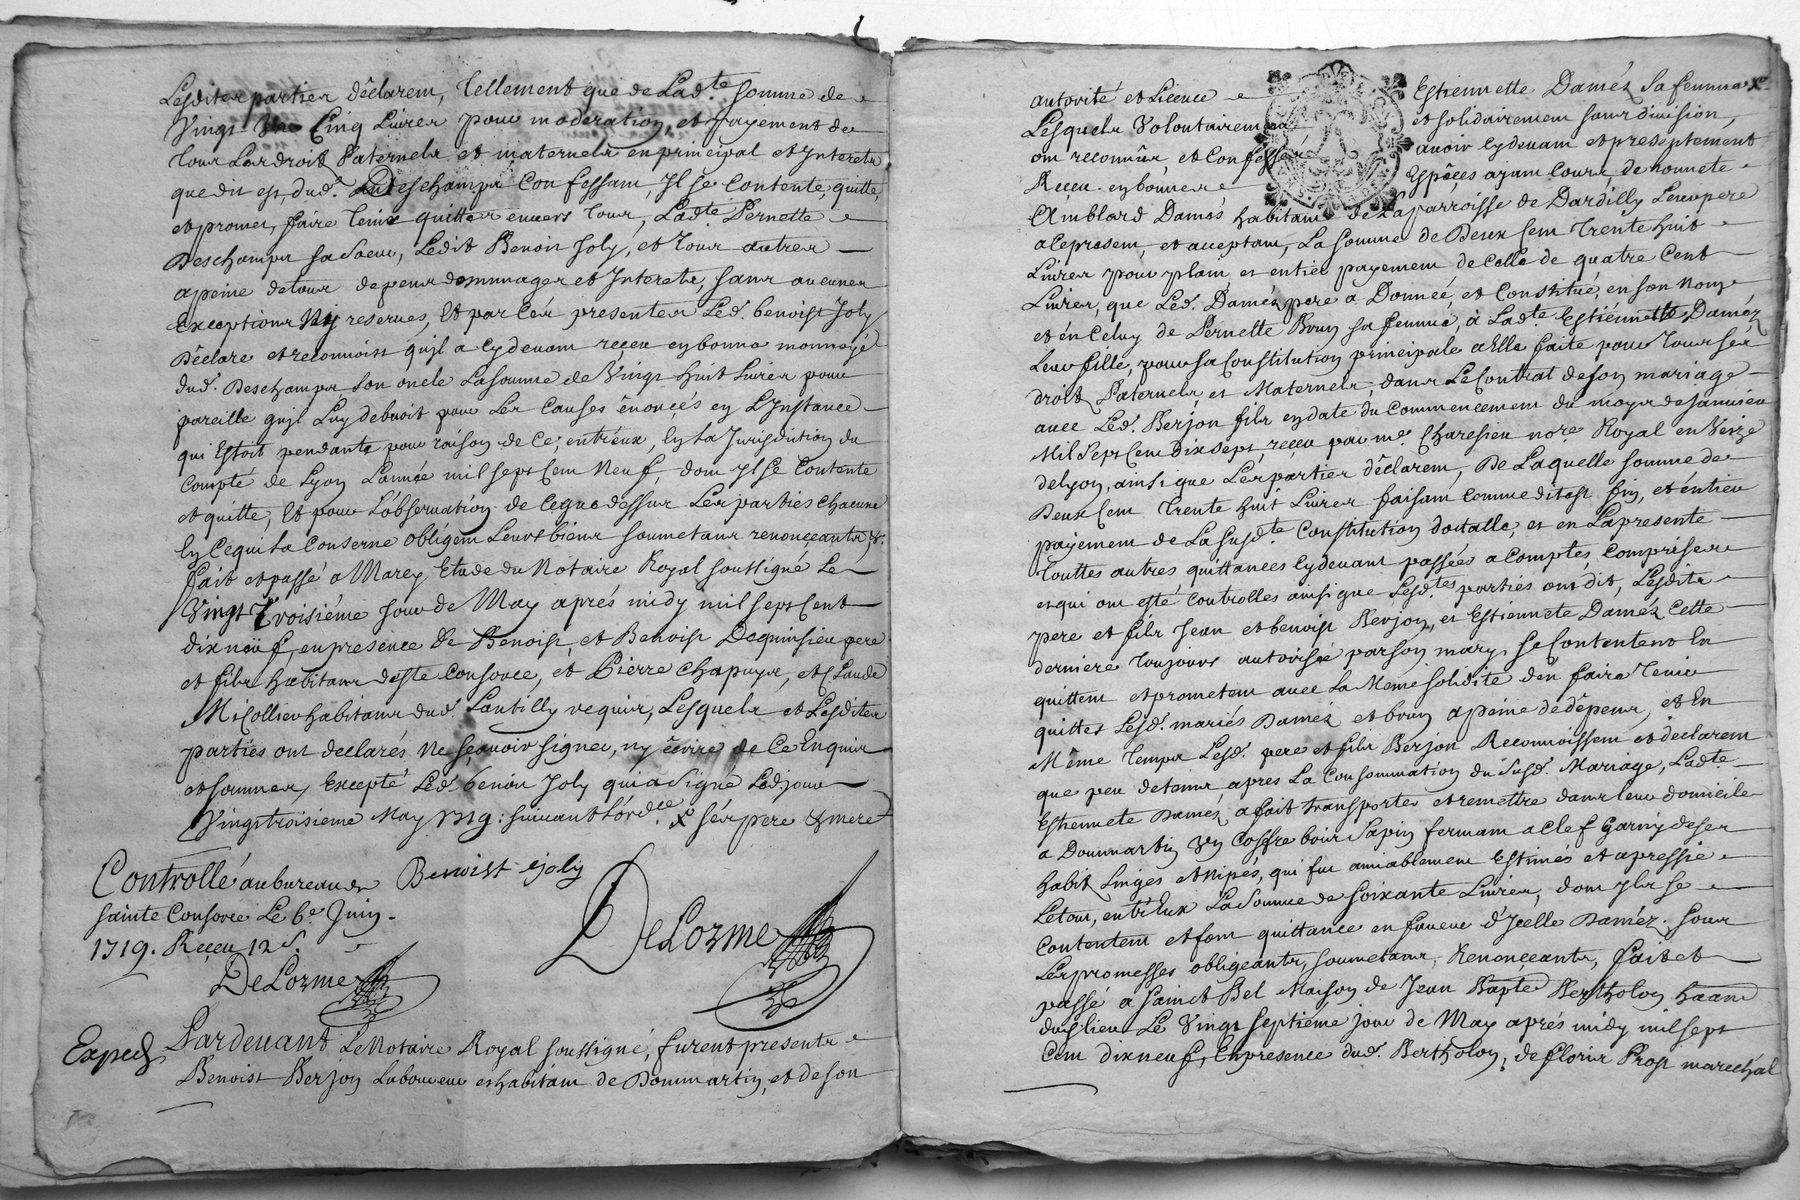 Lesdites parties déclarent, Tellement que de Lad.te somme de
Vingt Cinq Livres pour moderation, et payement de
tous Les droits Paternels et maternels en principal et Interets
que dit est, dud. Deschamps Confessant, Il se Contente, quitte,
et promet, faire tenir quitter envers tous, Ladte Pernette
Deschamps sa soeur, Ledit Benoist Joly, et tous autres
a peine de tous depens dommages et Interets, sans aucunes
Exceptions Ny reserves, Et par Ces presentes Led. benoist Joly
Déclare et reconnoist qu'il a cy devant reçeu en bonne monnoye
dud. Deschamps son oncle La somme de Vingt huit Livres pour
pareille qu'il Luy debvoit pour Les Causes énoncés en L'Instance
qui Estoit pendante pour raison de Ce, entr'eux, En La Jurisdiction du
Compté de Lyon L'année mil sept Cent Neuf, dont Il se Contente
et quitte, Et pour L'observation de Ceque dessus Les parties chacune
En Cequi La Conserne obligent Leurs biens soumetans renonçeants &.
fait et passé a Marcy Etude du Notaire Royal soussigné Le
Vingt Troisiéme jour de May aprés midy mil sept Cent
dix neuf, en presence de Benoist, et Benoist Dequinsieu pere
et fils habitans de Ste Consorce, et Pierre Chapuys, et Claude
Micollier habitans dud. Lentilly requis, Lesquels et Lesdites
parties ont declarés Ne sçavoir signer, ny êcrire de Ce Enquis
et sommes, Excepté Led. benoit Joly qui a signé Led. jour
Vingt troisieme May 1719: suivant L'ord.ce x ses pere & mere
Controllé au bureau de Benoist Joly
Sainte Consorce Le 6e Juin
1719. Reçeu 12 s.
DeLorme
DeLorme
Exped
Pardevant Le Notaire Royal soussigné, furent presents
Benoist Berjon Laboureur et habitant de Dommartin, et de son
autorité et Licence Estiennette Daméz sa femme x
Lesquels Volontairement et solidairement sans division,
ont reconnûs et Confessés avoir Cydevant et preseptement
Reçeu en bonnes Espèces ayant Cours, de honnete
Amblard Damés habitant de La parroisse de Dardilly Leur pere
a Ce present, et acceptant, La somme de Deux Cent Trente huit
Livres pour plain et entier payement de Celle de quatre Cent
Livres, que Led. Daméz pere a Donnée, et Constitué, en son Nom
et en Celuy de Pernette Brun sa femme, à Ladte Estiennette Daméz
Leur fille, pour sa Constitution principale a Elle faite pour Tous ses
droits Paternels et Maternels, dans Le Contrat de son mariage
avec Led. Berjon fils en date du Commencement du moys de Janvier
Mil Sept Cent Dix sept, reçeu par me. Charesieu nore. Royal en Veize
de Lyon, ainsi que Les parties déclarent, De Laquelle somme de
Deux Cent Trente huit Livres faisant Comme dit est fin, et entier
payement de La susdte Constitution doctalle, et en La presente
Touttes autres quittances Cydevant passées a Compte, Comprises
et qui ont esté Controlles ainsi que Lesd.tes parties ont dit, Lesdits
pere et fils Jean et benoist Berjon, et Estiennete Daméz Cette
derniere Toujours autorisée par son mary se Contentent En
quittent et prometent avec La Meme solidité d'en faire Tenir
quittes Lesd. mariés Daméz et brun a peine de dépens, et En
Même Temps Lesd. pere et fils Berjon Reconnoissent et déclarent
que peu de tems apres La Consommation du susd. Mariage, Ladte
Estiennete Daméz, a fait transporter et remettre dans Leur domicile
a Dommartin Un Coffre bois Sapin fermant a Clef Garny de ses
habits Linges et Nipés, qui fut amiablement Estimés et apressie
Le tout, entr'Eux La Somme de soixante Livres, dont Ils se
Contentent et font quittance en faveur d'Icelle Daméz. sous
Les promesses obligeants, soumetans, Renonçeants, fait et
passé a Sainct Bel Maison de Jean Bapte Bertholon haant
dud. lieu Le Vingt septieme jour de May aprés midy mil sept
Cent dix neuf, En presence dud. Bertholon, de floris Prost marechal